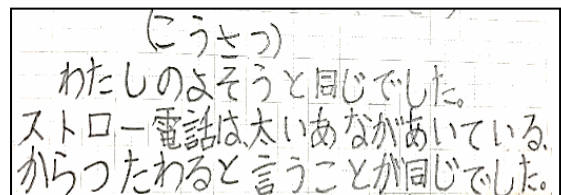 (こうさつ)
わたしのよそうと同じでした。
ストロー電話は、太いあながあいている、
からつたわると言うことが同じでした。